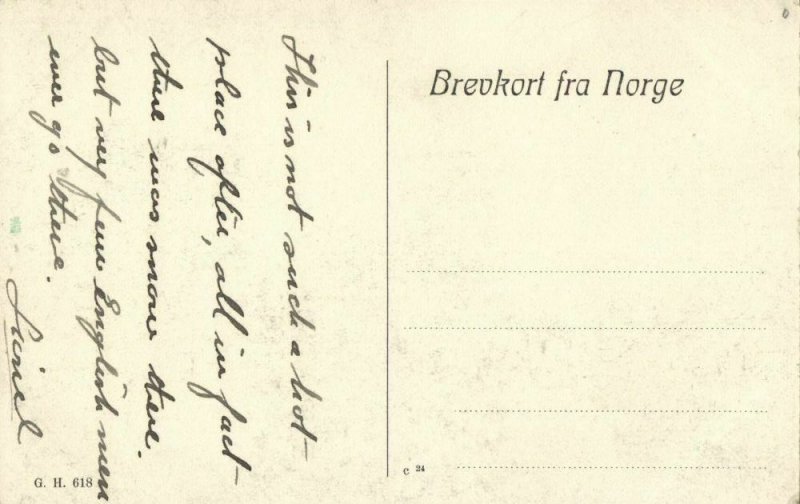 This is not such a hot
place after, all in fact
there was snow there.
but very few English men
ever go there.
Lionel
G. H. 618
Brevkort fra Norge
c 24